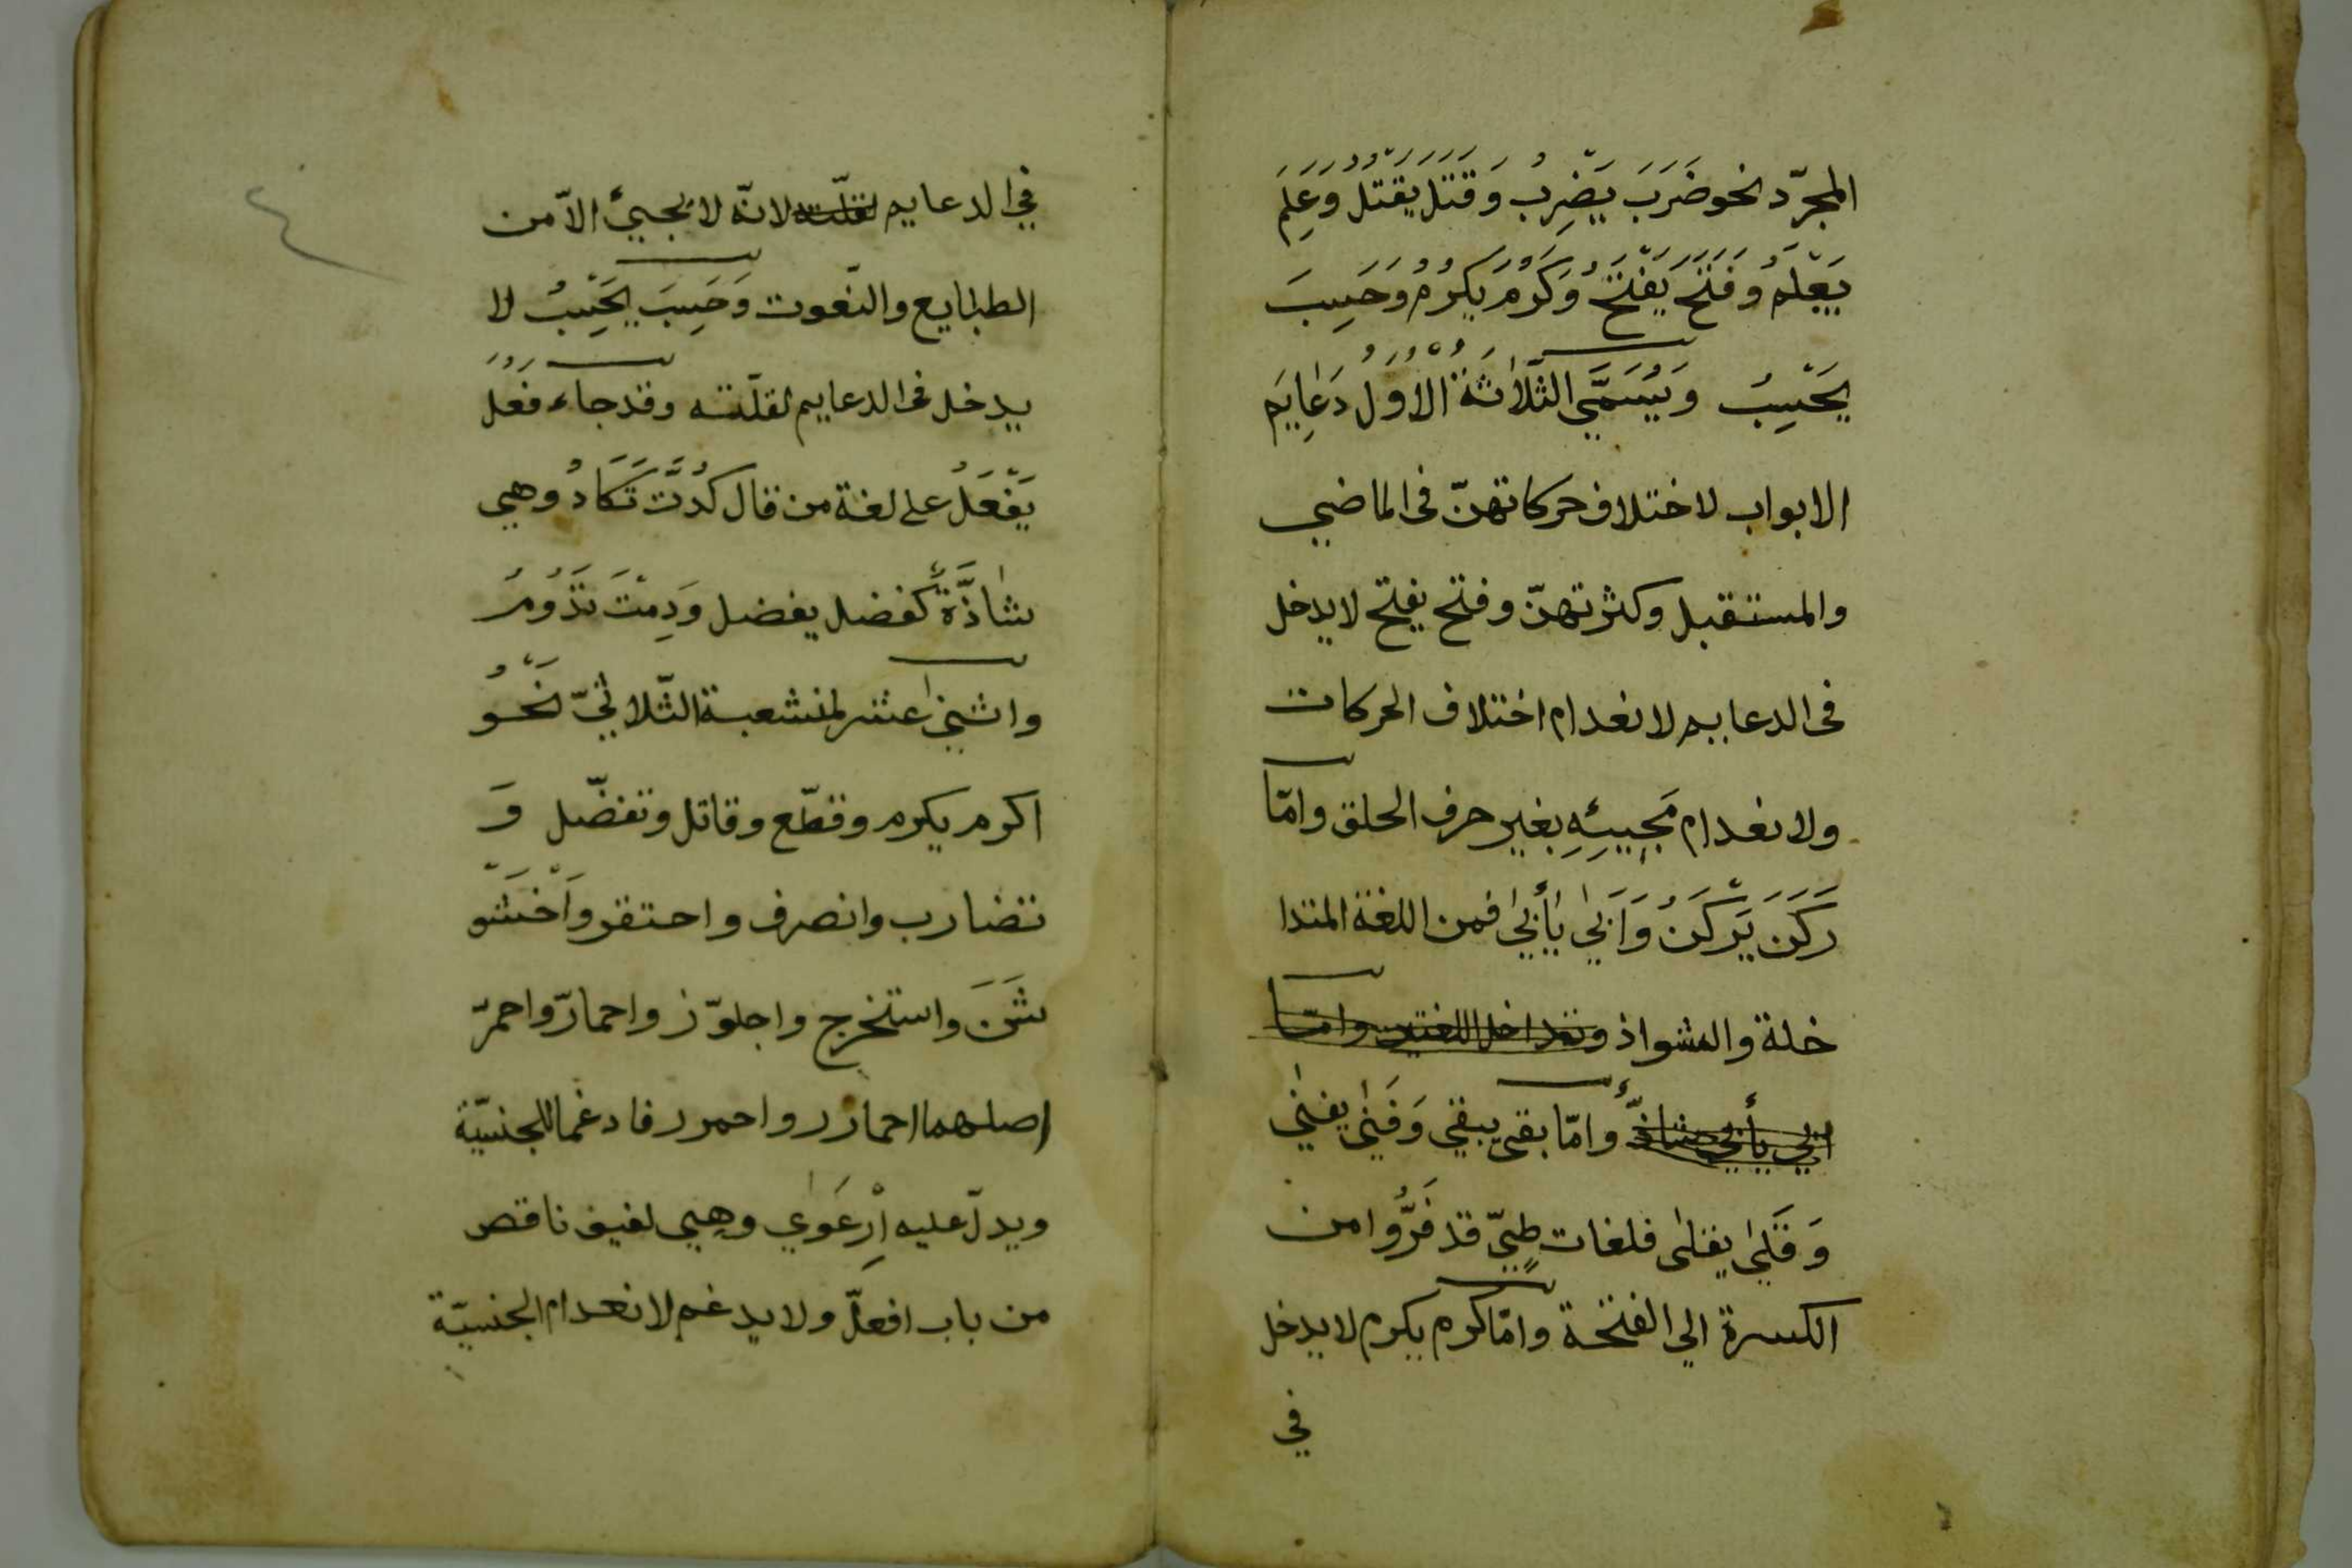 المجرّد نحو ضَرَبَ يَضْرِبُ وَقَتَلَ يَقْتُلُ وَعَلِمَ
يَعْلَمُ وَفَتَحَ يَفْتَحُ وَكَرُمَ يَكْرُمُ وَحَسِبَ
يَحْسِبُ وَيُسَمَّي الثَّلَاثَةُ الْاُوَلُ دَعَايَمَ
الابواب لاختلاف حركاتهنّ فى الماضي
والمستقبل وكثرتهنّ وفتح يفتح لا يدخل
فى الدعايم لانعدام اختلاف الحركات
ولانعدام مَجِيئِهِ بغير حرف الحلق وامّا
رَكَنَ يَرْكَنُ وَاَبَىٰ يَأْبَىٰ فمن اللغة المتدا
خلة والشواذ وتداخل اللغتين وامّا
ابي يأبي شاذٌّ وامّا بقى يبقي وَفَنَىٰ يفنىٰ
وَقَلَىٰ يقلىٰ فلغات طيٍّ قد فَرُّوا من
الكسرة الي الفتحة وامّا كرم يكرم لا يدخل
في
٤
في الدعايم لقلّته لانّه لا يجيئ الاّ من
الطبايع والنّعوت وَحَسِبَ يَحْسِبُ لا
يدخل فى الدعايم لقلّته وقد جاء فَعُلَ
يَفْعَلُ على لغة من قال كُدْتَ تَكَادُ وهي
شَاذَّةٌ كفضل يفضل وَدِمْتَ تَدُومُ
واثنىٰ عشر لمنشعبة الثّلاثيّ نَحْوُ
اكرم يكرم وقطّع وقاتل وتفضّل وَ
تضارب وانصرف واحتقر وَاخْشَوْ
شَنَ واستخرج واجلوّذ واحمارّ واحمرّ
اصلهما احمارر واحمرر فادغما للجنسيّة
ويدلّ عليه اِرْعَوٰي وهي لفيف ناقص
من باب افعلّ ولا يدغم لانعدام الجنسيّة